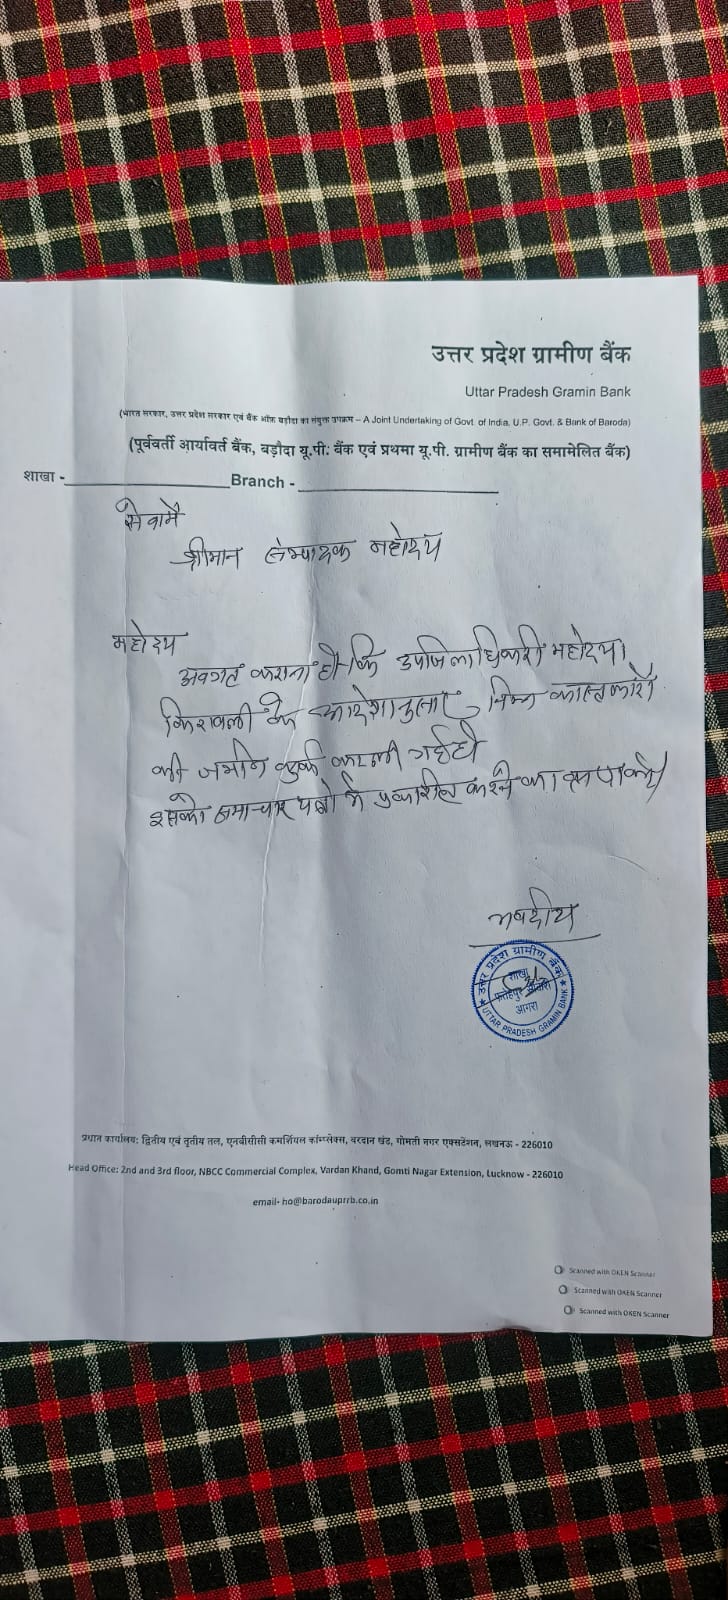 उत्तर प्रदेश ग्रामीण बैंक
Uttar Pradesh Gramin Bank
(भारत सरकार, उत्तर प्रदेश सरकार एवं बैंक ऑफ़ बड़ौदा का संयुक्त उपक्रम – A Joint Undertaking of Govt. of India, U.P. Govt. & Bank of Baroda)
(पूर्ववर्ती आर्यावर्त बैंक, बड़ौदा यू.पी. बैंक एवं प्रथमा यू.पी. ग्रामीण बैंक का समामेलित बैंक)
शाखा - Branch -
सेवामै
श्रीमान संम्पादक महोदय
महोदय
अवगत कराना है कि उपजिलाधिकरी महोदय
किरावली के आदेशानुसार निम्न काश्तकारों
की जमीन कुर्क करली गई है
इसको समाचार पत्रो मे प्रकाशित करने का
भवदीय
उत्तर प्रदेश ग्रामीण बैंक
शाखा
फतेहपुर सीकरी
आगरा
UTTAR PRADESH GRAMIN BANK
प्रधान कार्यालय: द्वितीय एवं तृतीय तल, एनबीसीसी कमर्शियल कॉम्प्लेक्स, वरदान खंड, गोमती नगर एक्सटेंशन, लखनऊ - 226010
Head Office: 2nd and 3rd floor, NBCC Commercial Complex, Vardan Khand, Gomti Nagar Extension, Lucknow - 226010
email- ho@barodauprrb.co.in
Scanned with OKEN Scanner
Scanned with OKEN Scanner
Scanned with OKEN Scanner